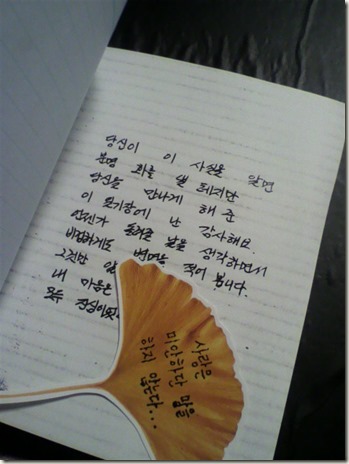 당신이 이 사실을 알면
분명 화를 낼 테지만
당신을 만나게 해 준
이 일기장에 난 감사해요.
언젠가 들려줄 날을 생각하면서
비겁하게도 변명을 적어 봅니다.
그것만
내 마음은
모두 진심이었
사랑은
미안하단 말을
하지 않는다...